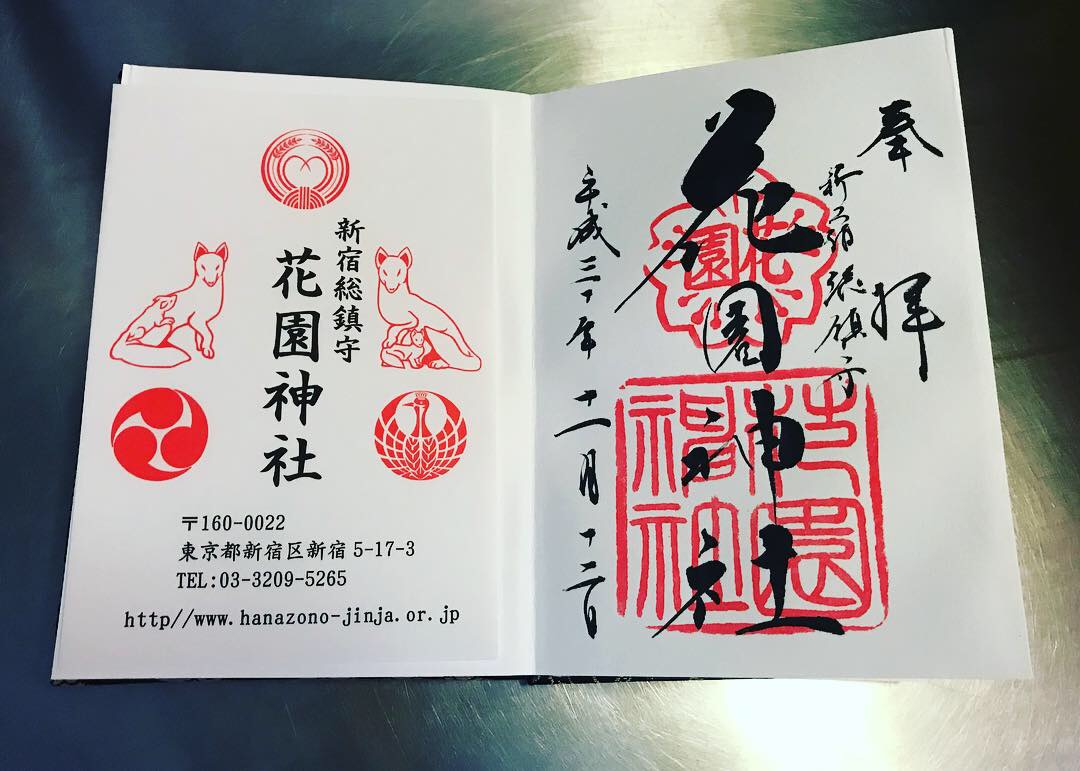 新宿総鎮守
花園神社
〒160-0022
東京都新宿区新宿5-17-3
TEL:03-3209-5265
http//www.hanazono-jinja.or.jp
奉拝
新宿総鎮守
花園神社
平成三十年十一月十二日
花園
花園神社